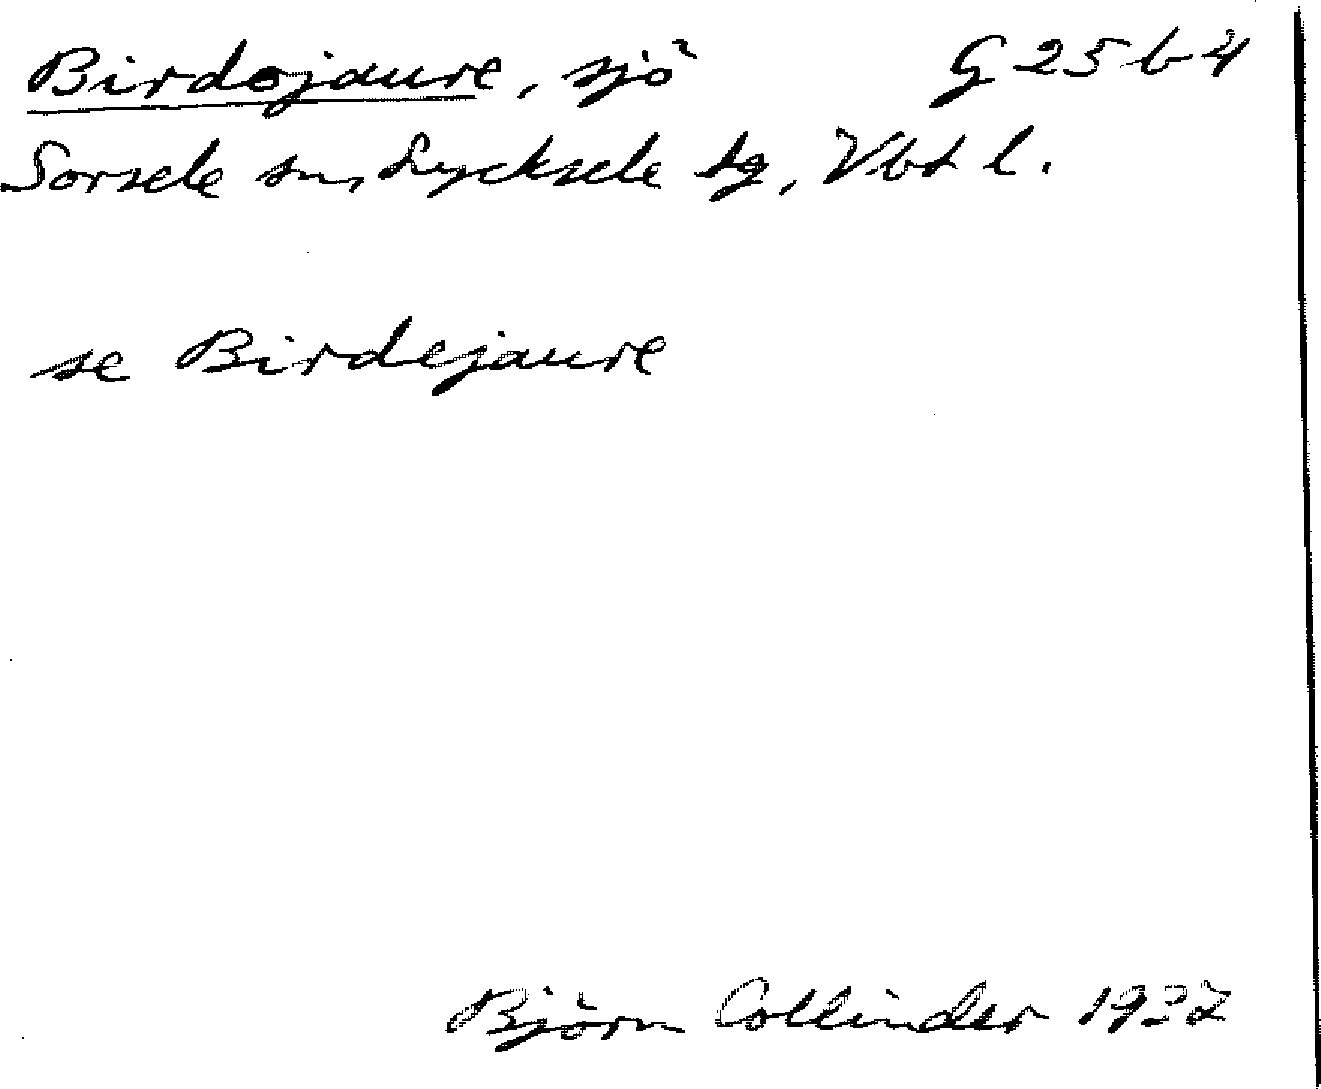 Birdojaure, sjö G 25 b 4
Sorsele sn, Lycksele tg, Vbt l.
se Birdejaure
Björn Collinder